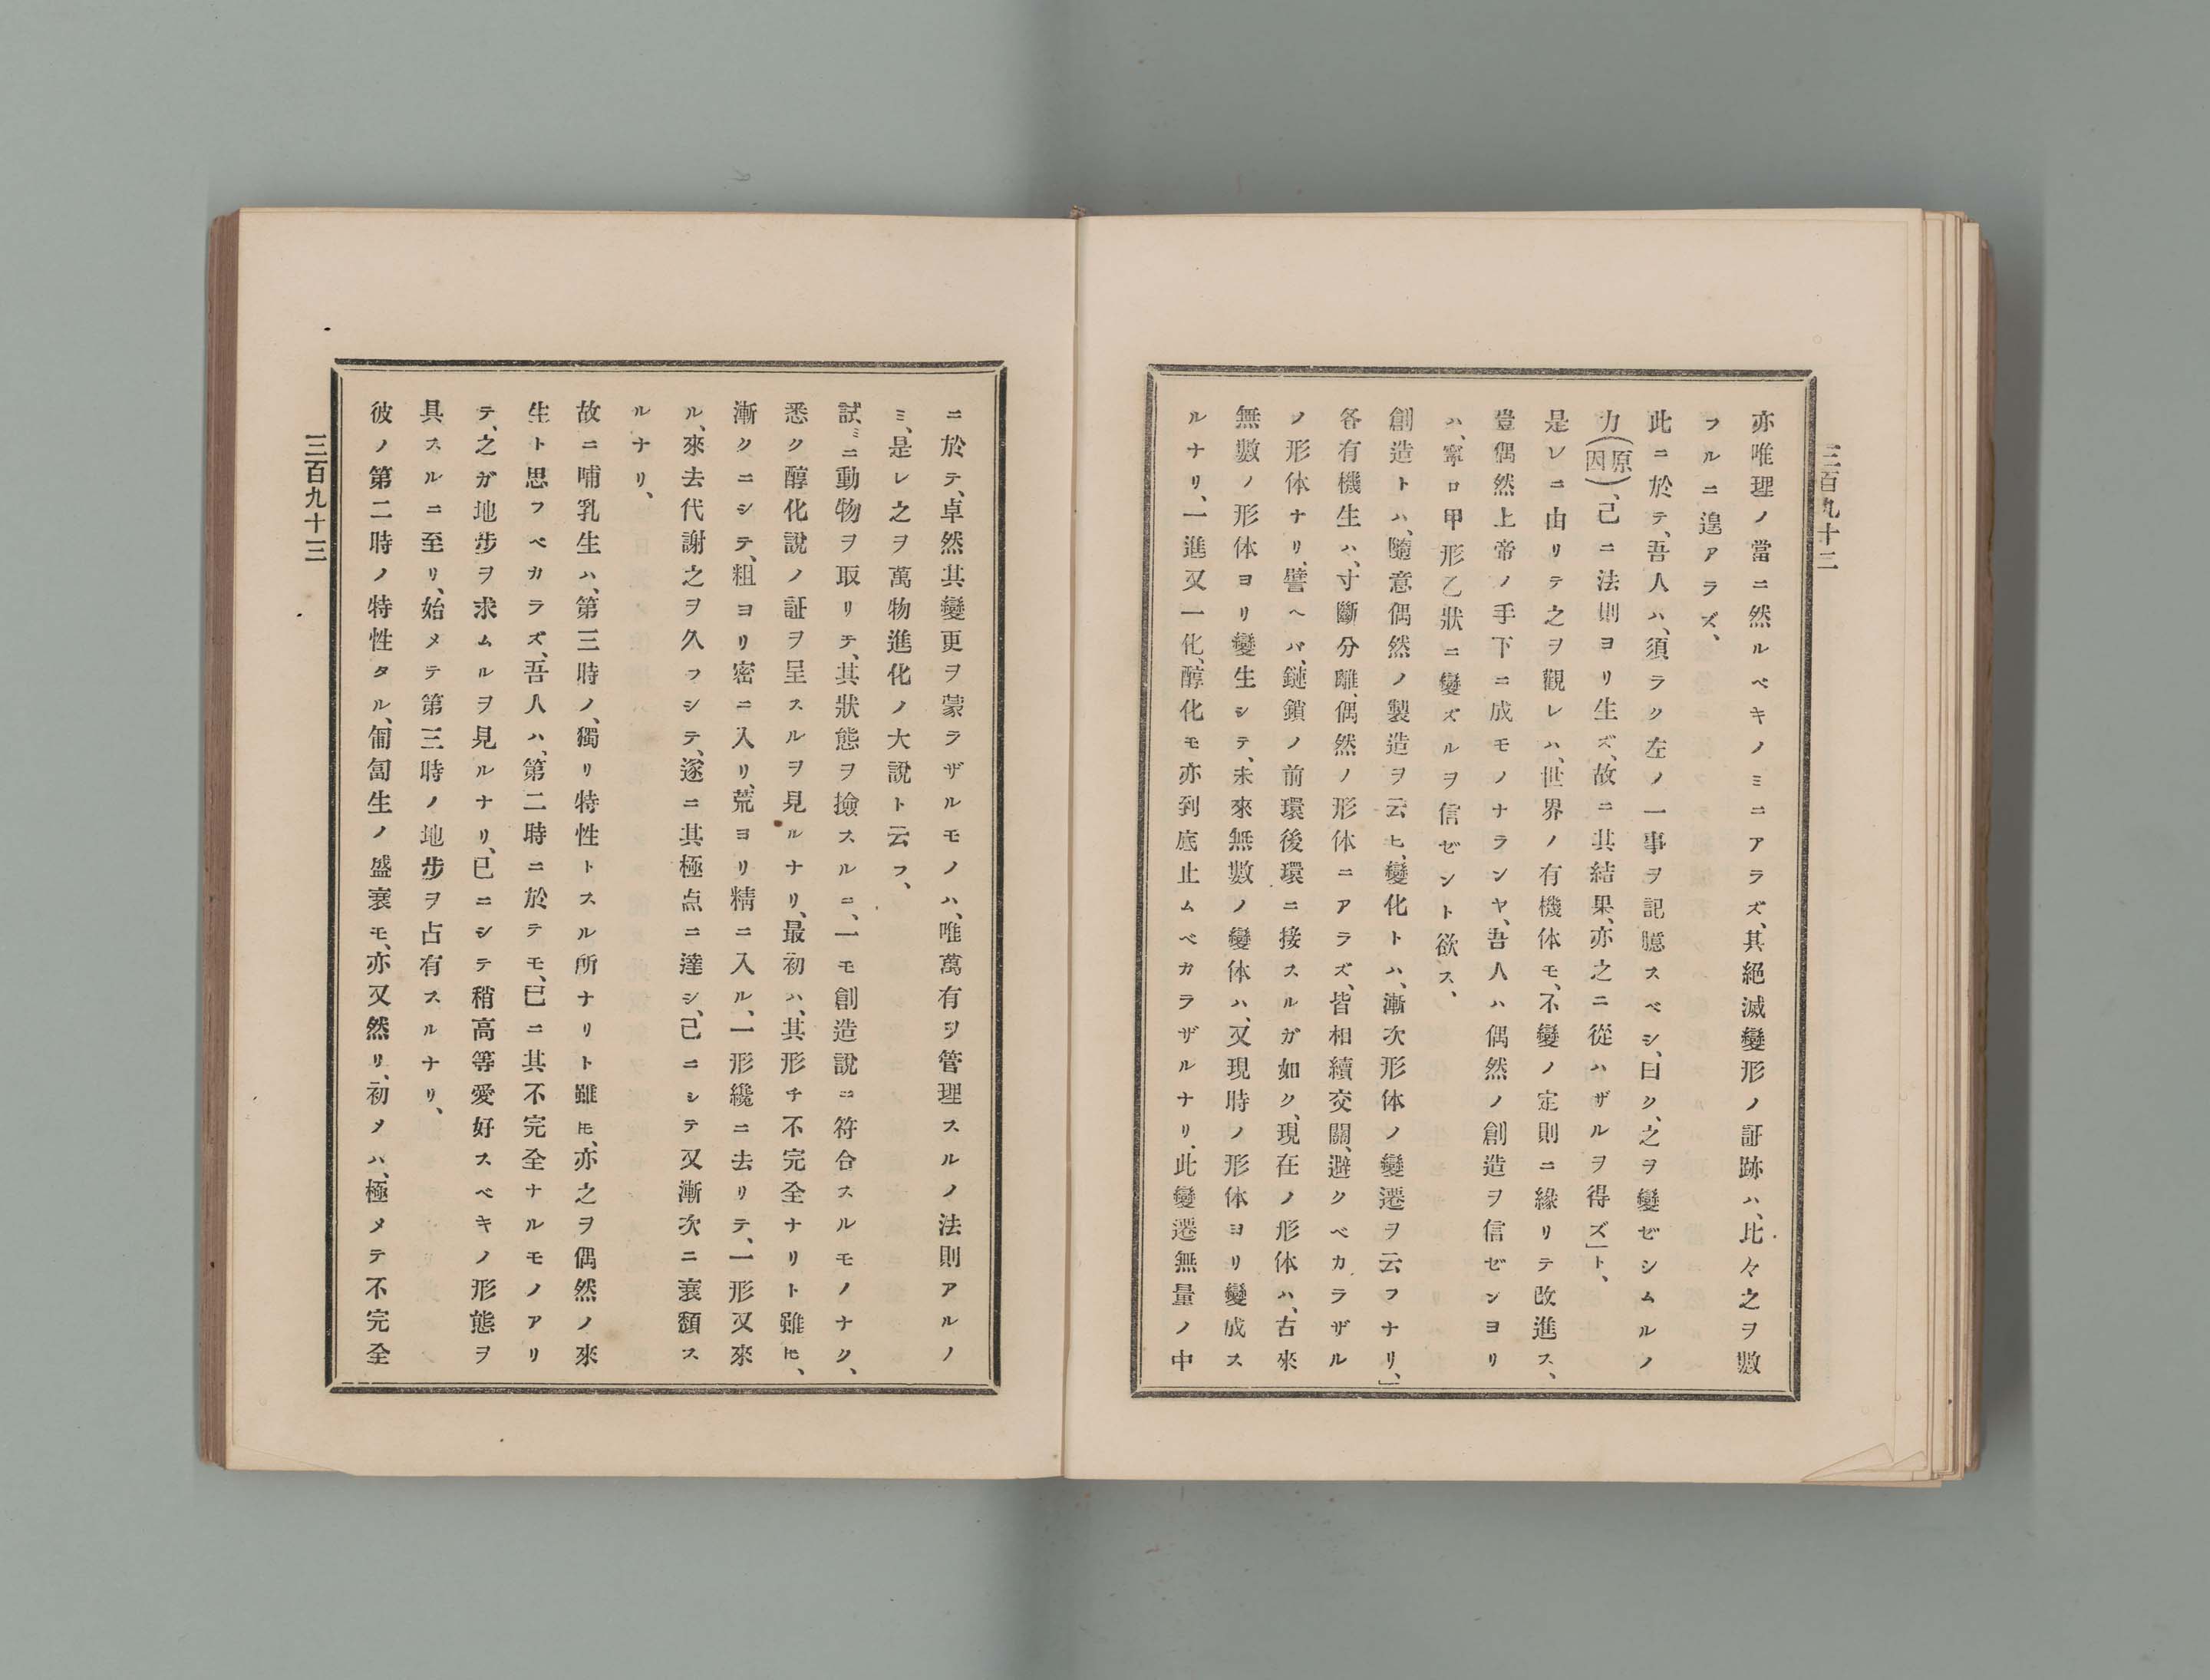 三百九十二
亦唯理ノ當ニ然ルベキノミニアラズ、其絕滅變形ノ証跡ハ、比々之ヲ數
フルニ遑アラズ、
此ニ於テ、吾人ハ、須ラク左ノ一事ヲ記臆スベシ、曰ク、之ヲ變ゼシムルノ
力(原因)、己ニ法則ヨリ生ズ、故ニ其結果、亦之ニ從ハザルヲ得ズ」ト、
是レニ由リテ之ヲ觀レハ、世界ノ有機体モ、不變ノ定則ニ緣リテ改進ス、
豈偶然上帝ノ手下ニ成モノナランヤ、吾人ハ偶然ノ創造ヲ信ゼンヨリ
ハ、寧ロ甲形乙狀ニ變ズルヲ信ゼント欲ス、
創造トハ、隨意偶然ノ製造ヲ云ヒ、變化トハ、漸次形体ノ變遷ヲ云フナリ、」
各有機生ハ、寸斷分離、偶然ノ形体ニアラズ、皆相續交關、避クベカラザル
ノ形体ナリ、譬ヘバ、鏈鎖ノ前環後環ニ接スルガ如ク、現在ノ形体ハ、古來
無數ノ形体ヨリ變生シテ、未來無數ノ變体ハ、又現時ノ形体ヨリ變成ス
ルナリ、一進又一化、醇化モ亦到底止ムベカラザルナリ、此變遷無量ノ中
ニ於テ、卓然其變更ヲ蒙ラザルモノハ、唯萬有ヲ管理スルノ法則アルノ
ミ、是レ之ヲ萬物進化ノ大說ト云フ、
試ミニ動物ヲ取リテ、其狀態ヲ撿スルニ、一モ創造說ニ符合スルモノナク、
悉ク醇化說ノ証ヲ呈スルヲ見ルナリ、最初ハ、其形チ不完全ナリト雖ヒ、
漸クニシテ、粗ヨリ密ニ入リ、荒ヨリ精ニ入ル、一形纔ニ去リテ、一形又來
ル、來去代謝之ヲ久フシテ、遂ニ其極点ニ達シ、己ニシテ又漸次ニ衰頽ス
ルナリ、
故ニ哺乳生ハ、第三時ノ、獨リ特性トスル所ナリト雖𪜈、亦之ヲ偶然ノ來
生ト思フベカラズ、吾人ハ、第二時ニ於テモ、已ニ其不完全ナルモノアリ
テ、之ガ地步ヲ求ムルヲ見ルナリ、已ニシテ稍高等愛好スベキノ形態ヲ
具スルニ至リ、始メテ第三時ノ地步ヲ占有スルナリ、
彼ノ第二時ノ特性タル、匍匐生ノ盛衰モ、亦又然リ、初メハ、極メテ不完全
三百九十三